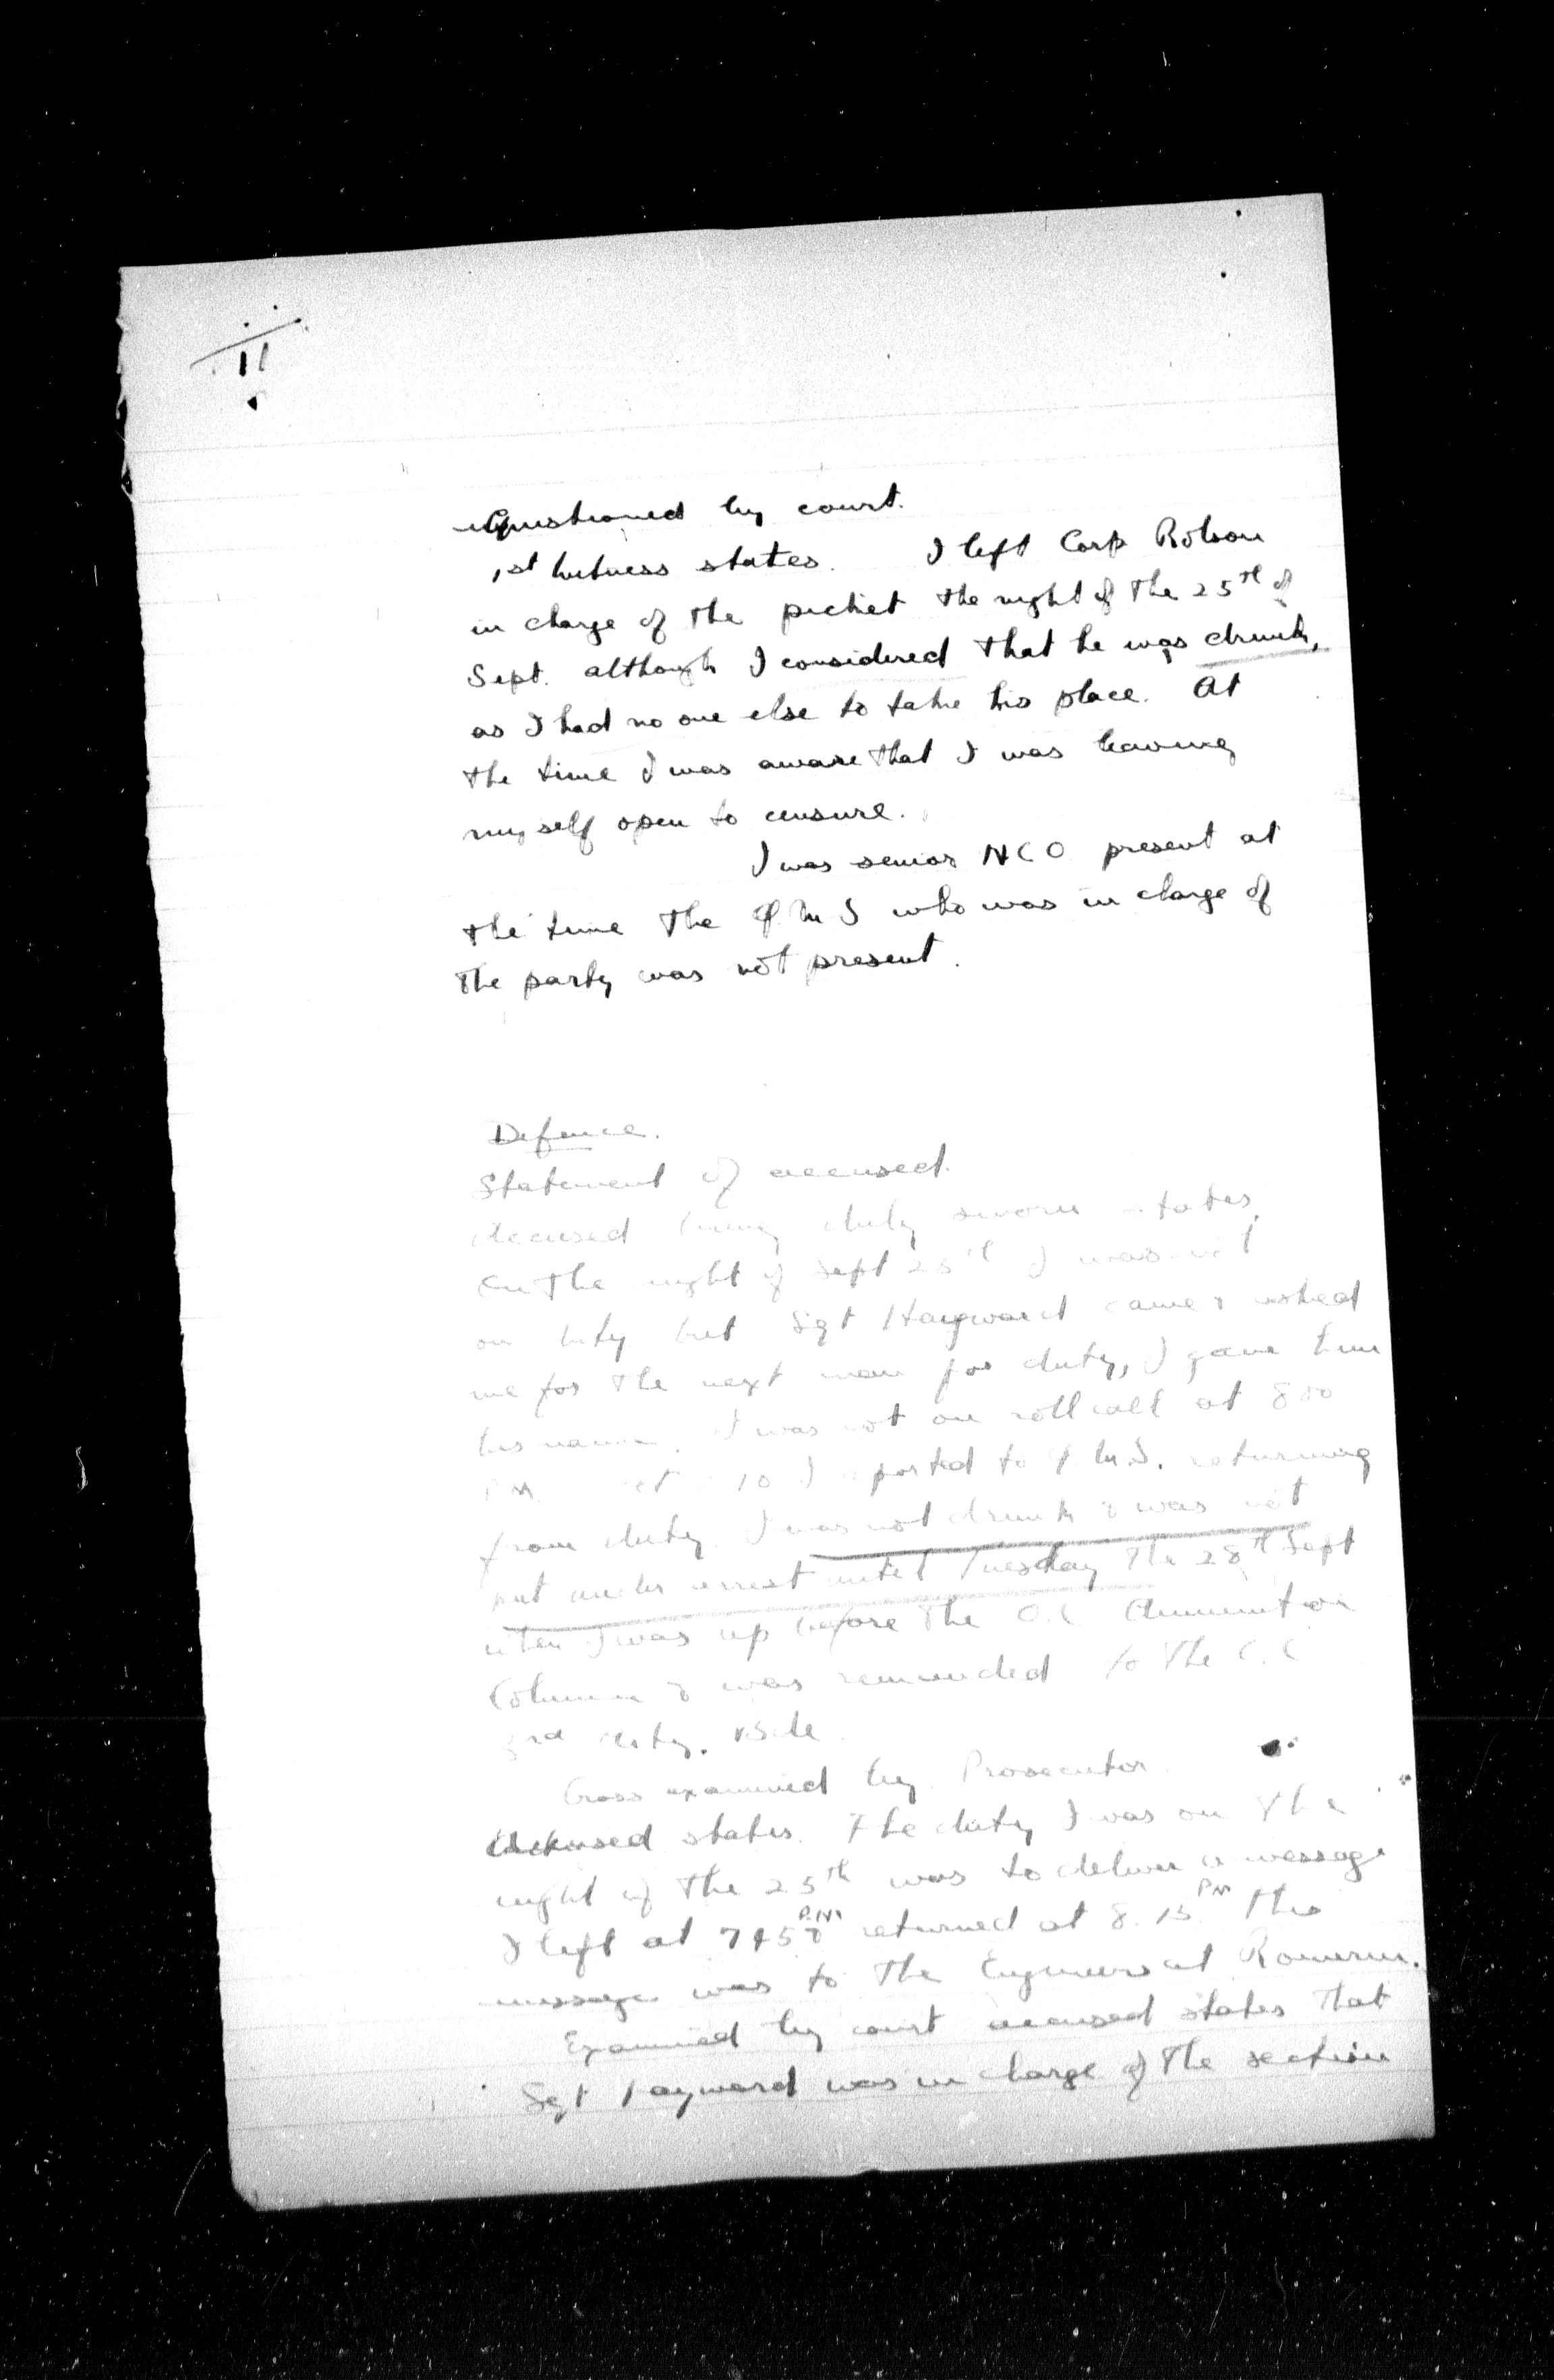 11
Questioned by court.
1st Witness states. I left Corp Robson
in charge of the picket the night of the 25th of
Sept. although I considered that he was drunk,
as I had no one else to take his place. At
the time I was aware that I was leaving
myself open to censure.
I was senior NCO present at
the time the Q.M.S who was in charge of
the party was not present.
Defence.
Statement of accused.
Accused being duly sworn states,
On the night of Sept 25th I was not
on duty but Sgt Hayward came & asked
me for the next man for duty, I gave him
his name. I was not on roll call at 800
PM at 10 I reported to Q.M.S. returning
from duty. I was not drunk & was not
put under arrest until Tuesday the 28th Sept
when I was up before the O.C Ammunition
Column & was remanded to the C.C
3rd Arty. Bde
Cross examined by Prosecutor.
Accused states. The duty I was on the
night of the 25th was to deliver a message
I left at 745 P.M. & returned at 8.15 PM this
message was to the Engineers at
Examined by court accused states that
Sgt Hayward was in charge of the section